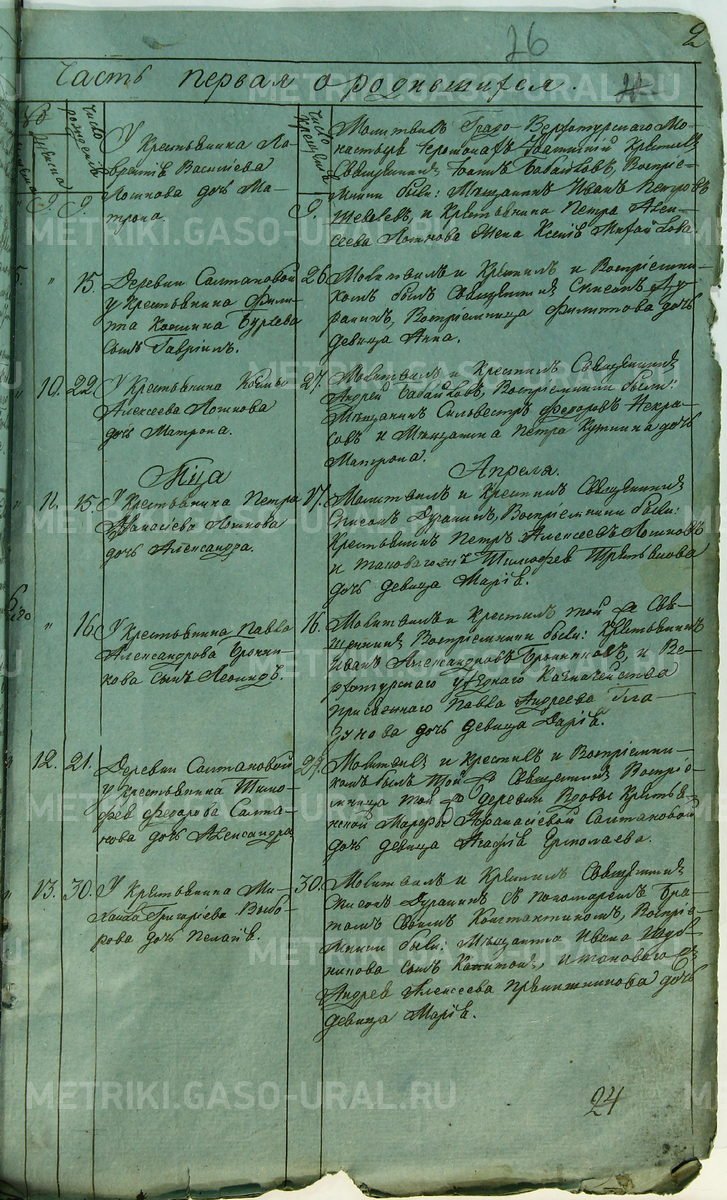 26
2
Часть первая о родившихся.
Число рожденія
Число крещенія
У Крестьянина Ла-
врентія Васильева
Лошкова дочь Ма-
трона.
9. 9. 9.
Молитвилъ Градо-Верхотурскаго Мо-
настыря Іеромонахъ Крестилъ
Священникъ Воспріе-
мники были: Мѣщанинъ Иванъ Петровъ
и Крестьянина Петра Алек-
сѣева Лошкова жена Ксенія Михайлова.
" 15. 26.
Деревни Салтановой
у Крестьянина Филип-
па Косьмина Бурлева
сынъ Гавріилъ.
Молитвилъ и Крестилъ и Воспріемни-
комъ былъ Священникъ Симеонъ Ду-
ранинъ, Воспріемница Филиппова дочь
девица Анна.
10. 22. 27.
У Крестьянина Космы
Алексѣева Лошкова
дочь Матрона.
Молитвилъ и Крестилъ Священникъ
Андрей Бабайловъ, Воспріемники были:
Мѣщанинъ Сильвестръ Федоровъ Некра-
совъ и Мѣщанина Петра дочь
Матрона.
Апреля.
11. 15. 17.
У Крестьянина Петра
Афанасіева Лошкова
дочь Александра.
Молитвилъ и Крестилъ Священникъ
Симеонъ Дуранинъ, Воспріемники были:
Крестьянинъ Петръ Алексѣевъ Лошковъ
и таковаго же Тимофея Третьякова
дочь девица Марія.
" 16. 16.
У Крестьянина Павла
Александрова Бронни-
кова сынъ Леонидъ.
Молитвилъ и Крестилъ той же Свя-
щенникъ Воспріемники были: Крестьянинъ
Иванъ Александровъ Бронниковъ, и Ве-
рхотурскаго уѣзднаго Казначейства
присяжнаго Павла Андреева Гла-
зунова дочь девица Дарія.
12. 21. 29.
Деревни Салтановой
у Крестьянина Тимо-
фея Федорова Салта-
нова дочь Александра
Молитвилъ и Крестилъ и Воспріемни-
комъ былъ той же Священникъ Воспріе-
мница той же деревни Вдовы Крестья-
нской Марфы Афанасіевой Салтановой
дочь девица Агафія Ермолаева.
13. 30. 30.
У Крестьянина Ми-
хаила Григоріева Выбо-
рова дочь Пелагія.
Молитвилъ и Крестилъ Священникъ
Симеонъ Дуранинъ съ Пономаремъ Бра-
томъ своимъ Константиномъ, Воспріе-
мники были: Мѣщанина Ивана
сынъ Капитонъ, и таковаго же
Андрея Алексѣева Пряничникова дочь
девица Марія.
24
METRIKI.GASO-URAL.RU